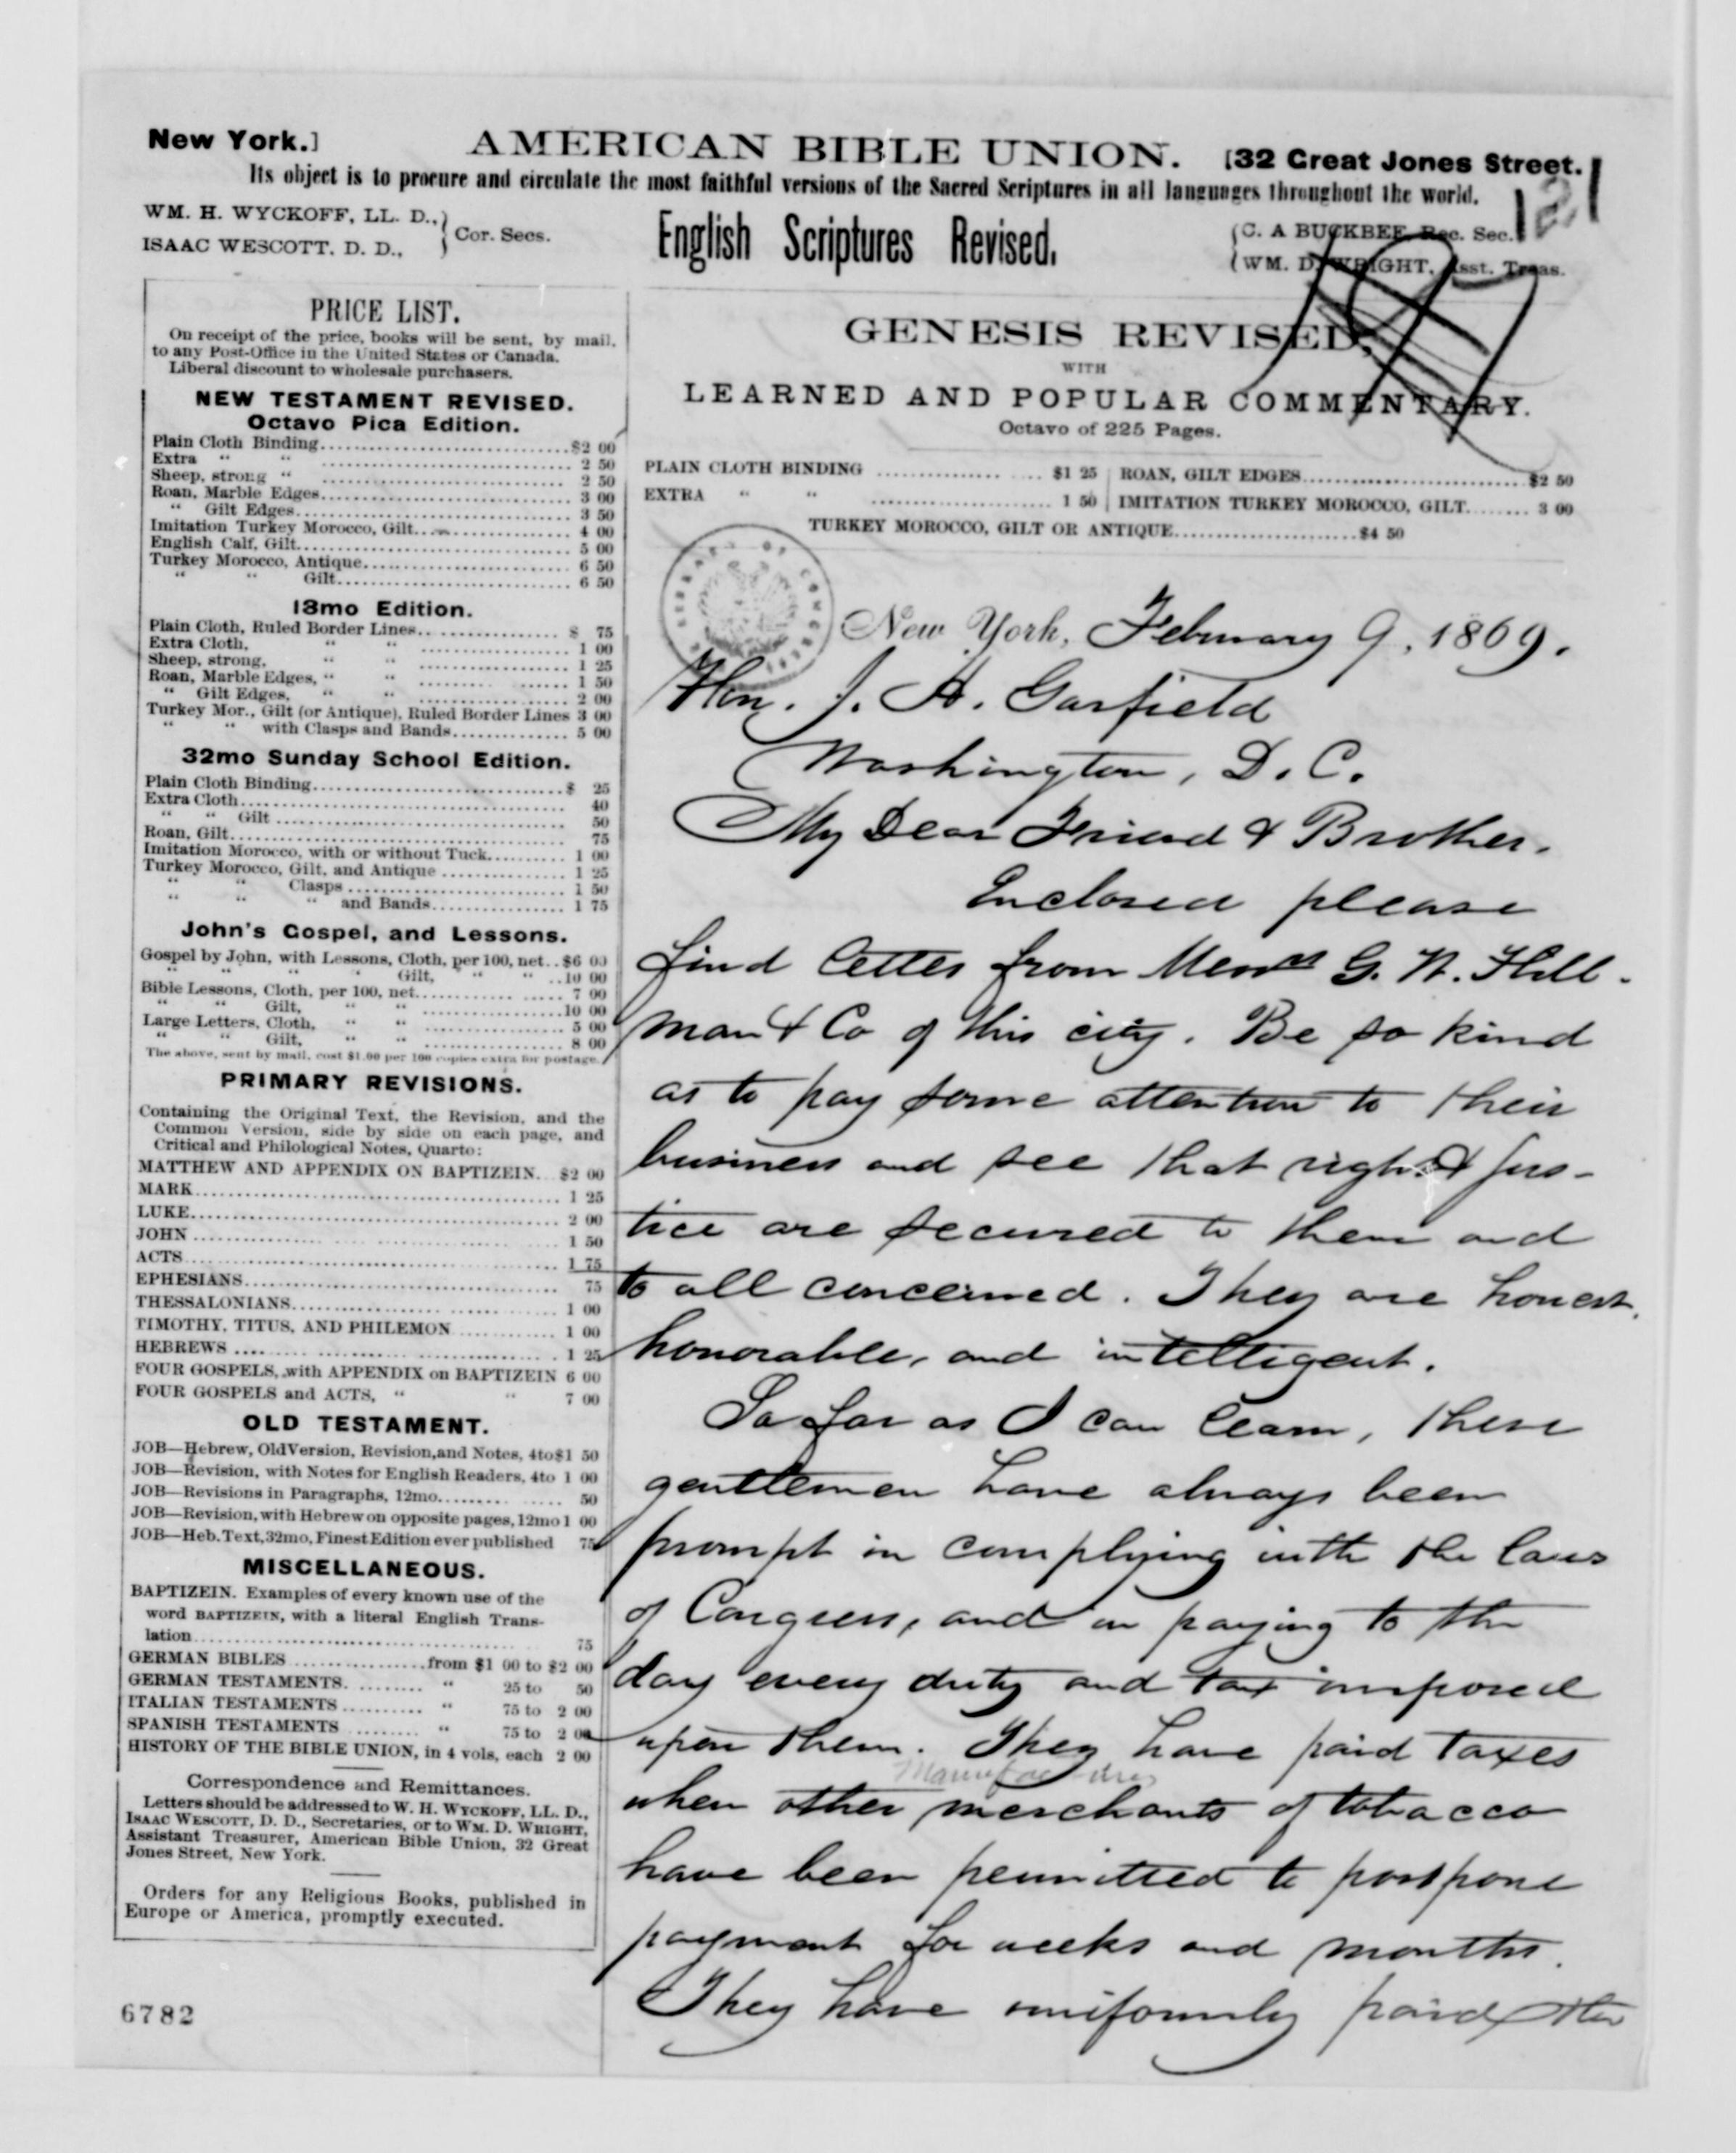 New York.] AMERICAN BIBLE UNION. [32 Great Jones Street.
Its object is to procure and circulate the most faithful versions of the Sacred Scriptures in all languages throughout the world.
121
WM. H. WYCKOFF, LL. D.,
ISAAC WESCOTT. D. D.,
} Cor. Secs.
English Scriptures Revised.
{C. A BUCKBEE, Rec. Sec.
{WM. D. WRIGHT, Asst. Treas.
PRICE LIST.
On receipt of the price, books will be sent, by mail,
to any Post-Office in the United States or Canada.
Liberal discount to wholesale purchasers.
NEW TESTAMENT REVISED.
Octavo Pica Edition.
Plain Cloth Binding....$2 00
Extra “ “ ....2 50
Sheep, strong “ ....2 50
Roan, Marble Edges....3 00
“ Gilt Edges....3 50
Imitation Turkey Morocco, Gilt....4 00
English Calf, Gilt....5 00
Turkey Morocco, Antique....6 50
“ “ Gilt....6 50
18mo Edition.
Plain Cloth, Ruled Border Lines....$ 75
Extra Cloth, “ “ ....1 00
Sheep, strong, “ “ ....1 25
Roan, Marble Edges, “ “ ....1 50
“ Gilt Edges, “ “ ....2 00
Turkey Mor., Gilt (or Antique), Ruled Border Lines 3 00
“ “ with Clasps and Bands....5 00
32mo Sunday School Edition.
Plain Cloth Binding....$ 25
Extra Cloth....40
“ “ Gilt ....50
Roan, Gilt....75
Imitation Morocco, with or without Tuck....1 00
Turkey Morocco, Gilt, and Antique ....1 25
“ “ Clasps ....1 50
“ “ “ and Bands....1 75
John's Gospel, and Lessons.
Gospel by John, with Lessons, Cloth, per 100, net..$6 00
“ “ “ “ Gilt, “ “ ..10 00
Bible Lessons, Cloth, per 100, net....7 00
“ “ Gilt, “ “ ....10 00
Large Letters, Cloth, “ “ ....5 00
“ “ Gilt, “ “ ....8 00
The above, sent by mail, cost $1.00 per 100 copies extra for postage.
PRIMARY REVISIONS.
Containing the Original Text, the Revision, and the
Common Version, side by side on each page, and
Critical and Philological Notes, Quarto:
MATTHEW AND APPENDIX ON BAPTIZEIN...$2 00
MARK....1 25
LUKE....2 00
JOHN....1 50
ACTS....1 75
EPHESIANS....75
THESSALONIANS....1 00
TIMOTHY, TITUS, AND PHILEMON....1 00
HEBREWS....1 25
FOUR GOSPELS, with APPENDIX on BAPTIZEIN 6 00
FOUR GOSPELS and ACTS, “ “ 7 00
OLD TESTAMENT.
JOB—Hebrew, Old Version, Revision, and Notes, 4to $1 50
JOB—Revision, with Notes for English Readers, 4to 1 00
JOB—Revisions in Paragraphs, 12mo....50
JOB—Revision, with Hebrew on opposite pages, 12mo 1 00
JOB—Heb. Text, 32mo, Finest Edition ever published 75
MISCELLANEOUS.
BAPTIZEIN. Examples of every known use of the
word BAPTIZEIN, with a literal English Trans-
lation....75
GERMAN BIBLES....from $1 00 to $2 00
GERMAN TESTAMENTS.... “ 25 to 50
ITALIAN TESTAMENTS.... “ 75 to 2 00
SPANISH TESTAMENTS.... “ 75 to 2 00
HISTORY OF THE BIBLE UNION, in 4 vols, each 2 00
Correspondence and Remittances.
Letters should be addressed to W. H. WYCKOFF, LL. D.,
ISAAC WESCOTT, D. D., Secretaries, or to WM. D. WRIGHT,
Assistant Treasurer, American Bible Union, 32 Great
Jones Street, New York.
Orders for any Religious Books, published in
Europe or America, promptly executed.
6782
GENESIS REVISED,
WITH
LEARNED AND POPULAR COMMENTARY.
Octavo of 225 Pages.
PLAIN CLOTH BINDING ....$1 25 | ROAN, GILT EDGES....$2 50
EXTRA “ “ ....1 50 | IMITATION TURKEY MOROCCO, GILT....3 00
TURKEY MOROCCO, GILT OR ANTIQUE....$4 50
New York, February 9, 1869.
Hon. J. A. Garfield
Washington, D. C.
My Dear Friend & Brother.
Enclosed please
find letter from Messrs G. W. Hill-
man & Co of this city. Be so kind
as to pay some attention to their
business and see that right & jus-
tice are secured to them and
to all concerned. They are honest,
honorable, and intelligent.
So far as I can learn, these
gentlemen have always been
prompt in complying with the laws
of Congress, and in paying to the
day every duty and tax imposed
upon them. They have paid taxes
Manufacturers
when other merchants of tobacco
have been permitted to postpone
payment for weeks and months.
They have uniformly paid the